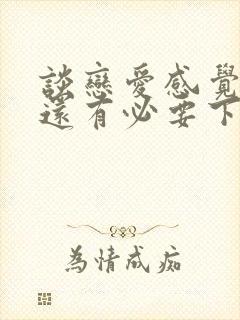 談戀愛感覺
還有必要下
為情成痴